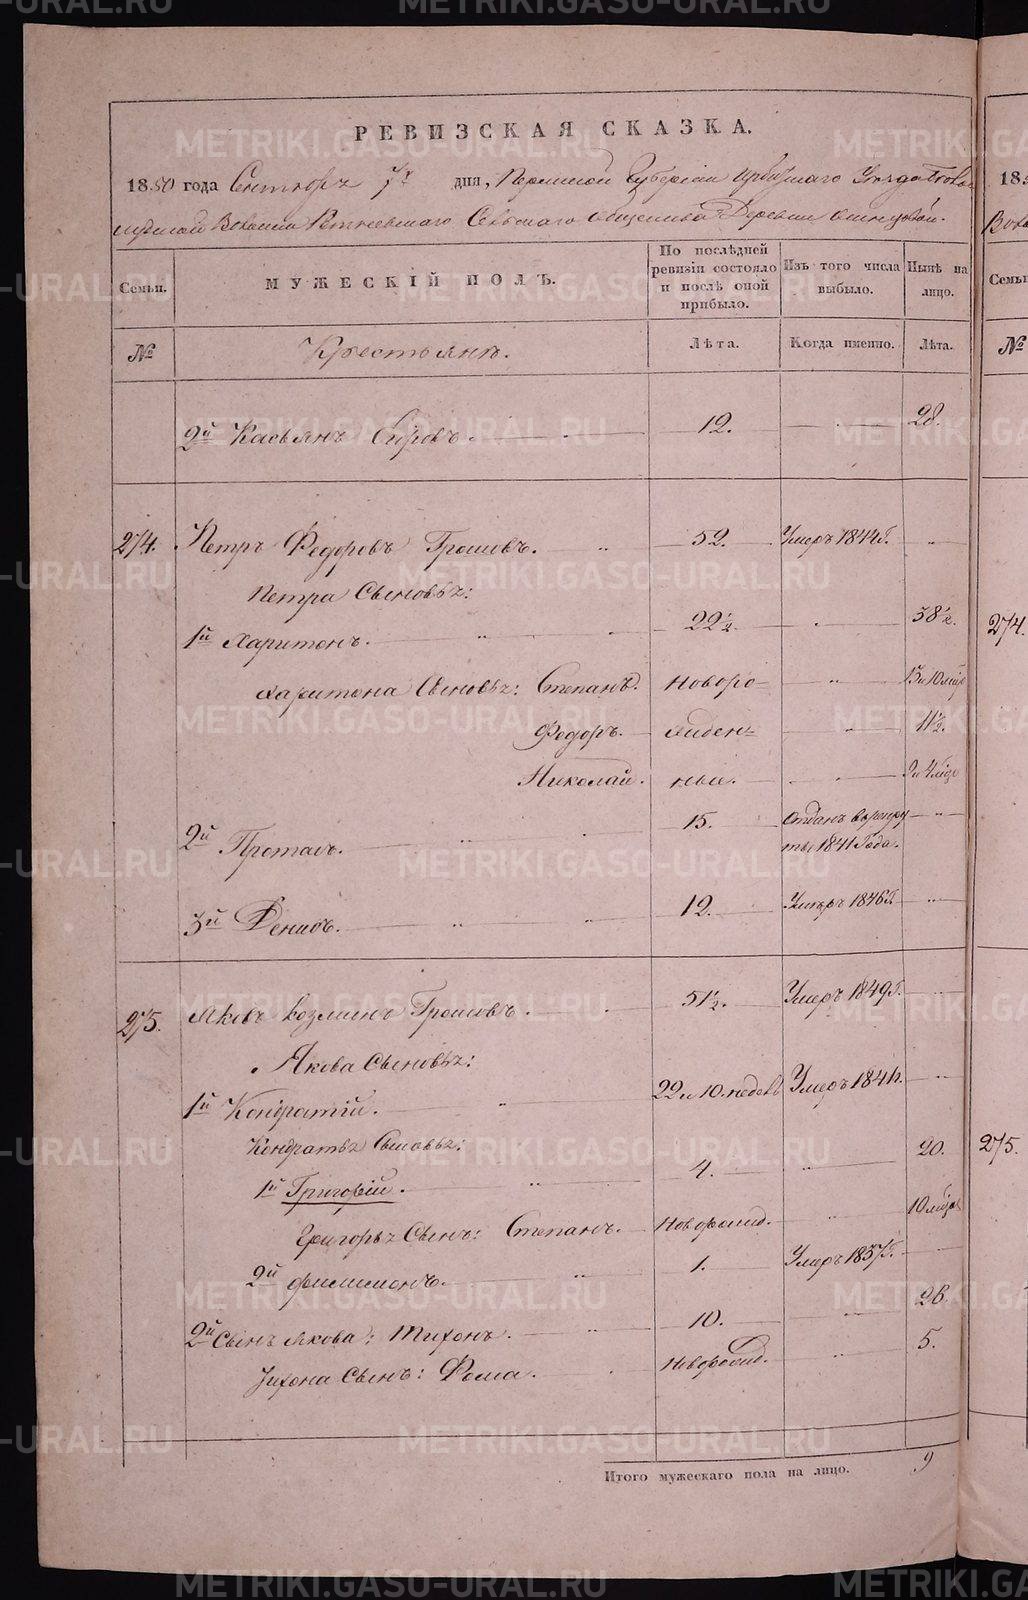 РЕВИЗСКАЯ СКАЗКА.
1850 года Сентября 7го дня, Пермской Губернии Ирбитского Уезда
Волости Сельского общества Деревни
Семьи. МУЖЕСКІЙ ПОЛЪ. По послѣдней ревизіи состояло и послѣ оной прибыло. Изъ того числа выбыло. Нынѣ на лицо.
№ Крестьяне. Лѣта. Когда именно. Лѣта.
2й Касьянъ 12. 28.
274. Петръ Федоровъ Грошовъ. 52. Умеръ 1844г.
Петра Сыновья:
1й Харитонъ. 22½. 38½.
Харитона Сыновья: Степанъ. Новоро- 13 и 10 мѣся
Федоръ. жден- 11½.
Николай. ные. 2 и 4 мѣся
2й 15. Отданъ в рекру
ты 1841 Года.
3й Денисъ. 12. Умеръ 1846г.
275. Яковъ Козминъ Грошовъ. 51½. Умеръ 1849г.
Якова Сыновья:
1й Кондратій. 22 и 10. недель Умеръ 1841г.
Кондратья Сыновья:
1й Григорій. 4. 20.
Григорья Сынъ: Степанъ. Новорожд. 10 мѣся
2й Филимонъ. 1. Умеръ 1837г.
2й Сынъ Якова: Тихонъ. 10. 26.
Тихона Сынъ: Фома. Новорожд. 5.
Итого мужескаго пола на лицо. 9
18
Семьи
№
274.
275.
METRIKI.GASO-URAL.RU